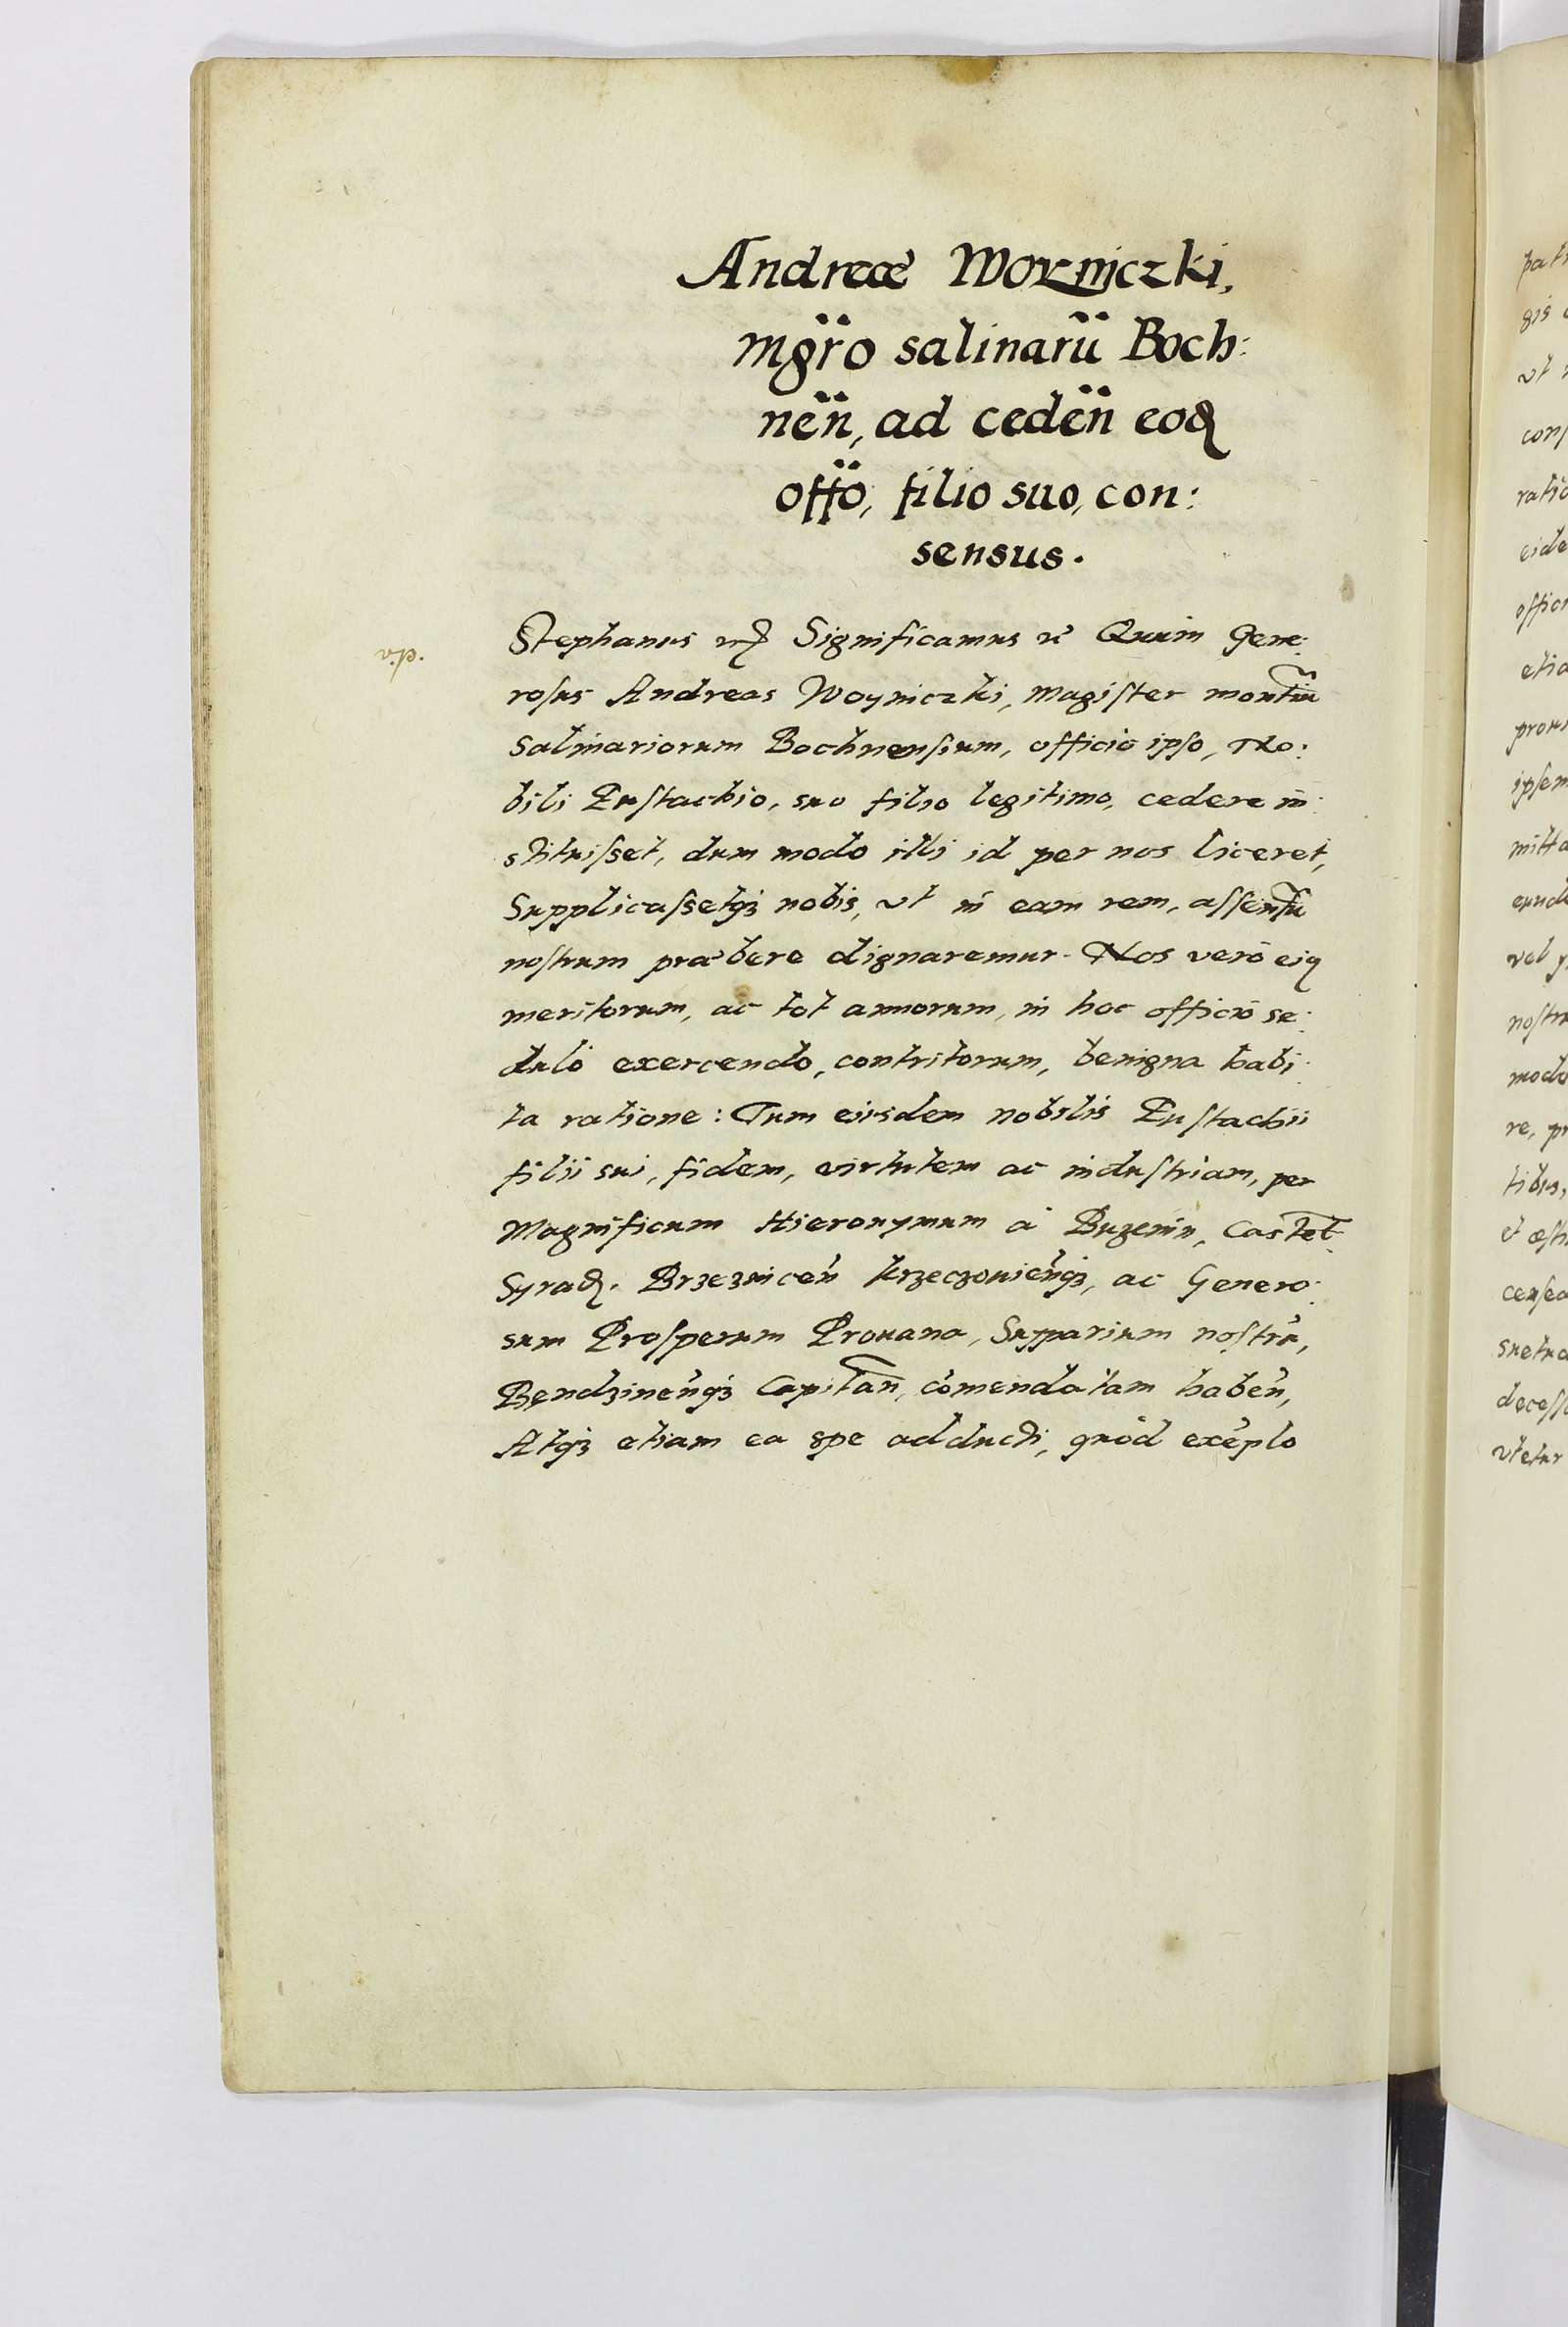 Andreæ Woyniczki,
mgro salinarū Boch:
nen̄, ad ceden̄ eoꝺ
offo, filio suo, con:
sensus.
Stephanus Significamus Quum Gene:
roſus Andreas Woyniczki, Magiſter montiū
Salinariorum Bochnenſium, officio ipſo, No:
bili Euſtachio, suo filio legitimo, cedere in:
stituiſset, dum modo illi id per nos liceret,
Supplicaſsetqꝫ nobis, vt in eam rem, aſſensū
noſtrum præbere dignaremur. Nos verò eiꝰ
meritorum, ac tot annorum, in hoc officio se:
dulò exercendo, contritorum, benigna habi:
ta ratione: Tum eiusdem nobilis Euſtachii
filii sui, fidem, virtutem ac induſtriam, per
Magnificum Hieronymum à Buzenin, Castel:
Syraꝺ. Brzeznicen̄ Krzeczouien̄qꝫ, ac Genero:
sum Proſperum Prouana, Supparium noſtrū,
Bendzinen̄qꝫ Capitan̄, cōmendatam haben̄,
Atqꝫ etiam ea spe adducti, quòd exēplo
pat
gis
vt
conſ
ratio
eide
offici
etia
prou
ipſem
mitta
eund
vel
noſtr
modo
re, pr
tibus,
et
cenſe
sueta
deceſſ
vtetur